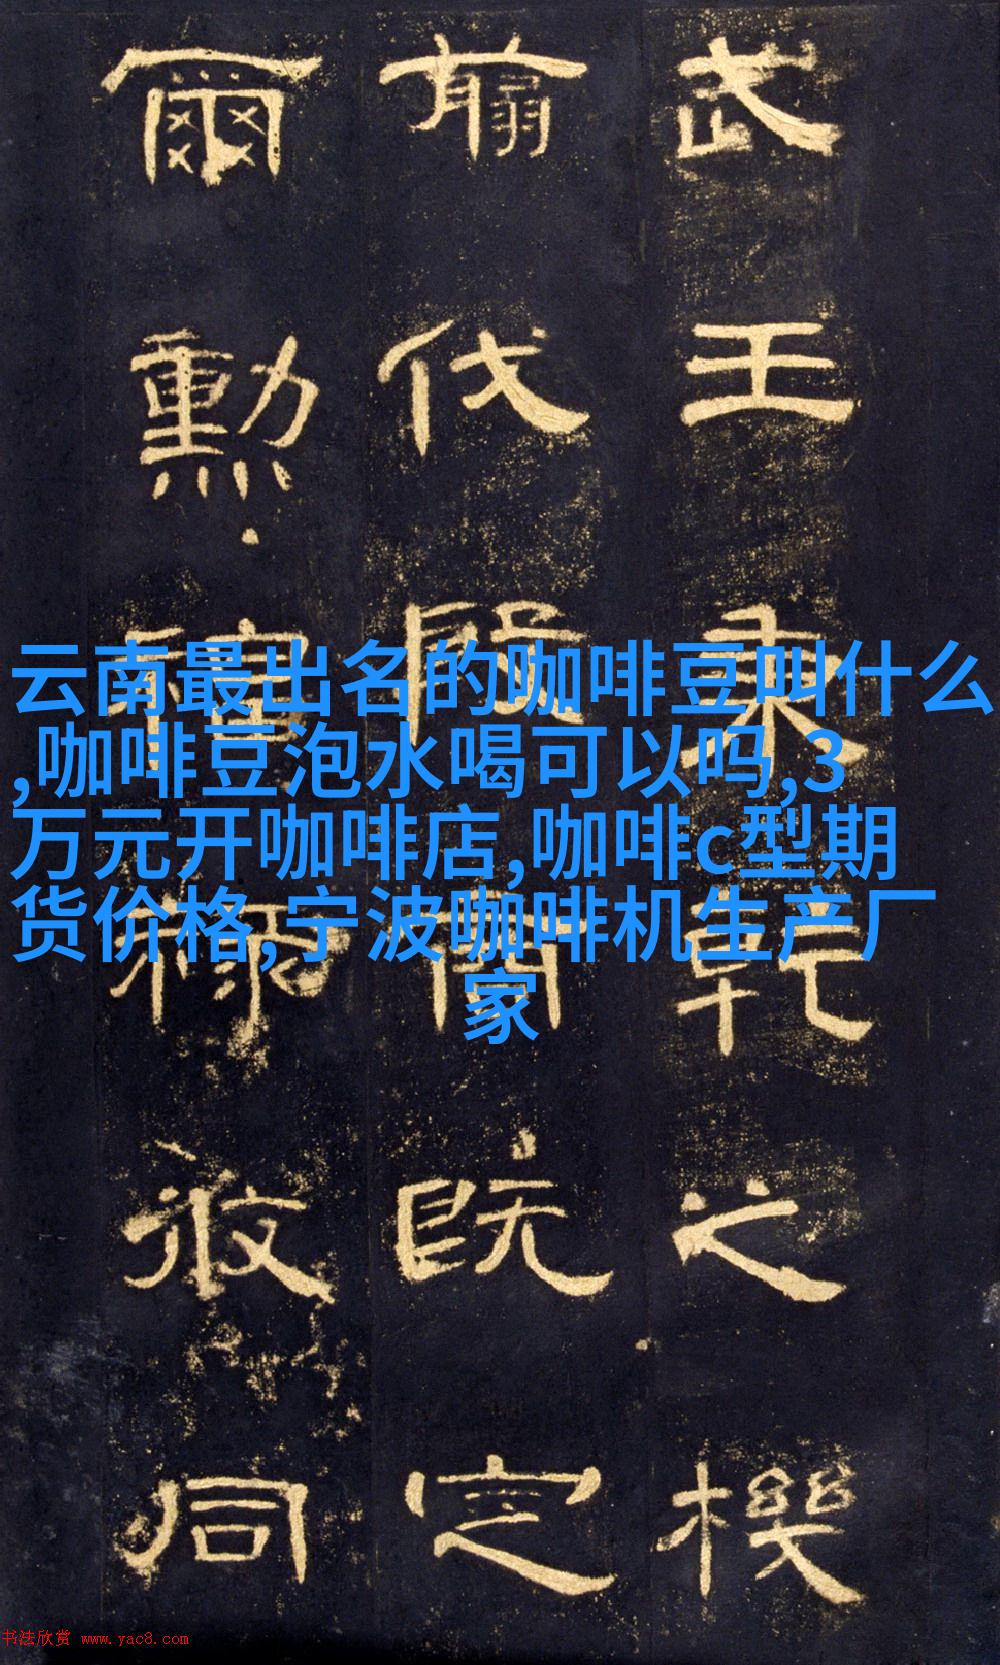 武王秉乾之機
翦伐殷商既定
爾勳福祿攸同
云南最出名的咖啡豆叫什么
,咖啡豆泡水喝可以吗,3
万元开咖啡店,咖啡c型期
货价格,宁波咖啡机生产厂
家
书法欣赏 www.yac8.com